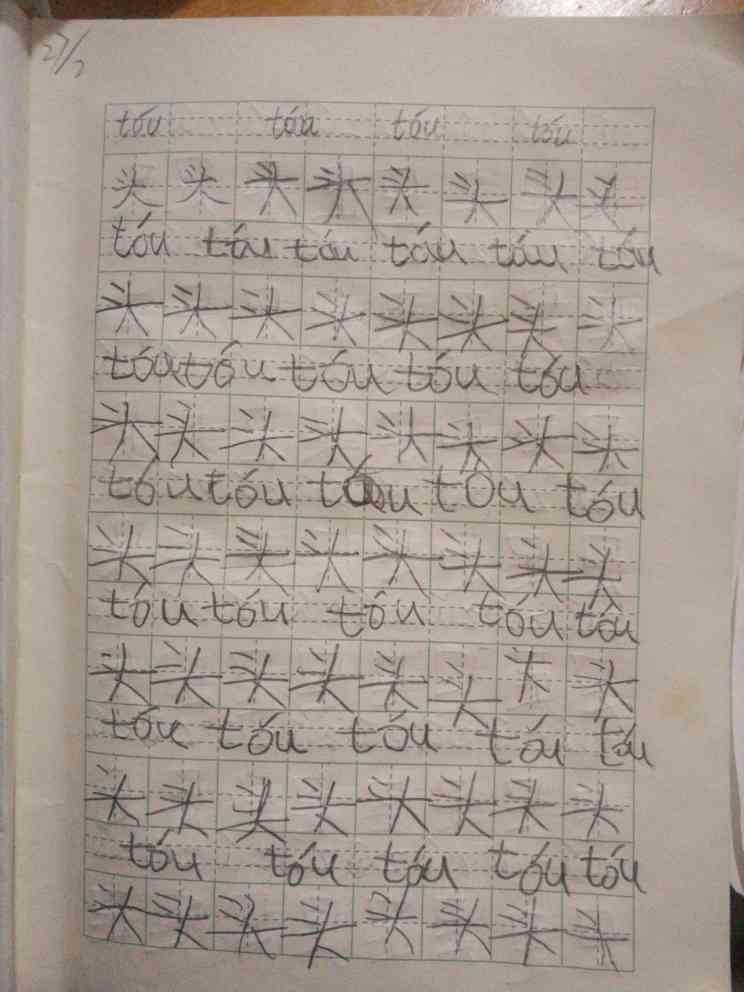 27/2
tóu tóu tóu tóu
头 头 头 头 头 头 头 头
tóu tóu tóu tóu tóu tóu
头 头 头 头 头 头 头 头
tóu tóu tóu tóu tóu
头 头 头 头 头 头 头 头
tóu tóu tóu tóu tóu
头 头 头 头 头 头 头 头
tóu tóu tóu tóu tóu
头 头 头 头 头 头 头
tóu tóu tóu tóu tóu
头 头 头 头 头 头 头 头
tóu tóu tóu tóu tóu
头 头 头 头 头 头 头 头